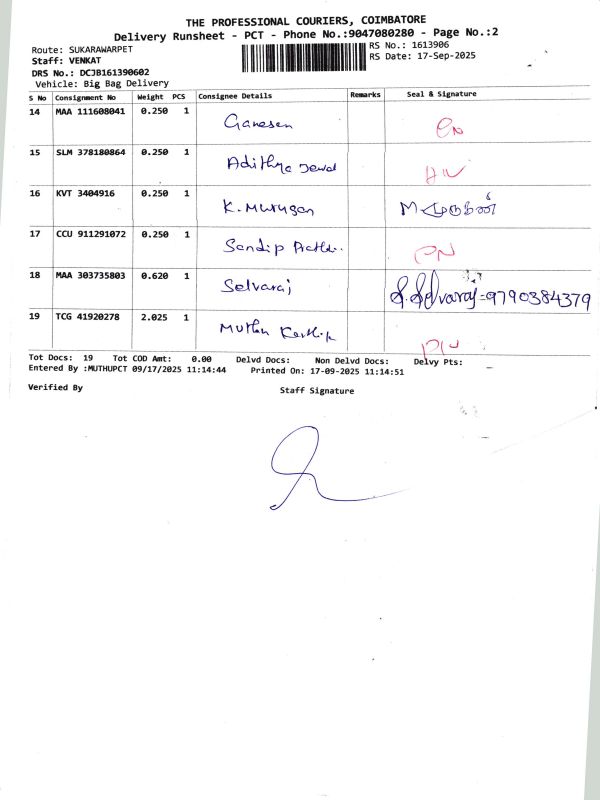 THE PROFESSIONAL COURIERS, COIMBATORE
Delivery Runsheet - PCT - Phone No.:9047080280 - Page No.:2
Route: SUKARAWARPET
RS No.: 1613906
Staff: VENKAT
RS Date: 17-Sep-2025
DRS No.: DCJB161390602
Vehicle: Big Bag Delivery
S No Consignment No Weight PCS Consignee Details Remarks Seal & Signature
14 MAA 111608041 0.250 1 Ganesan
15 SLM 378180864 0.250 1 Adithya
16 KVT 3404916 0.250 1 K. Murugan
17 CCU 911291072 0.250 1 Sandip
18 MAA 303735803 0.620 1 Selvaraj S. Selvaraj=9790384379
19 TCG 41920278 2.025 1 Muthu
Tot Docs: 19 Tot COD Amt: 0.00 Delvd Docs: Non Delvd Docs: Delvy Pts:
Entered By :MUTHUPCT 09/17/2025 11:14:44 Printed On: 17-09-2025 11:14:51
Verified By Staff Signature